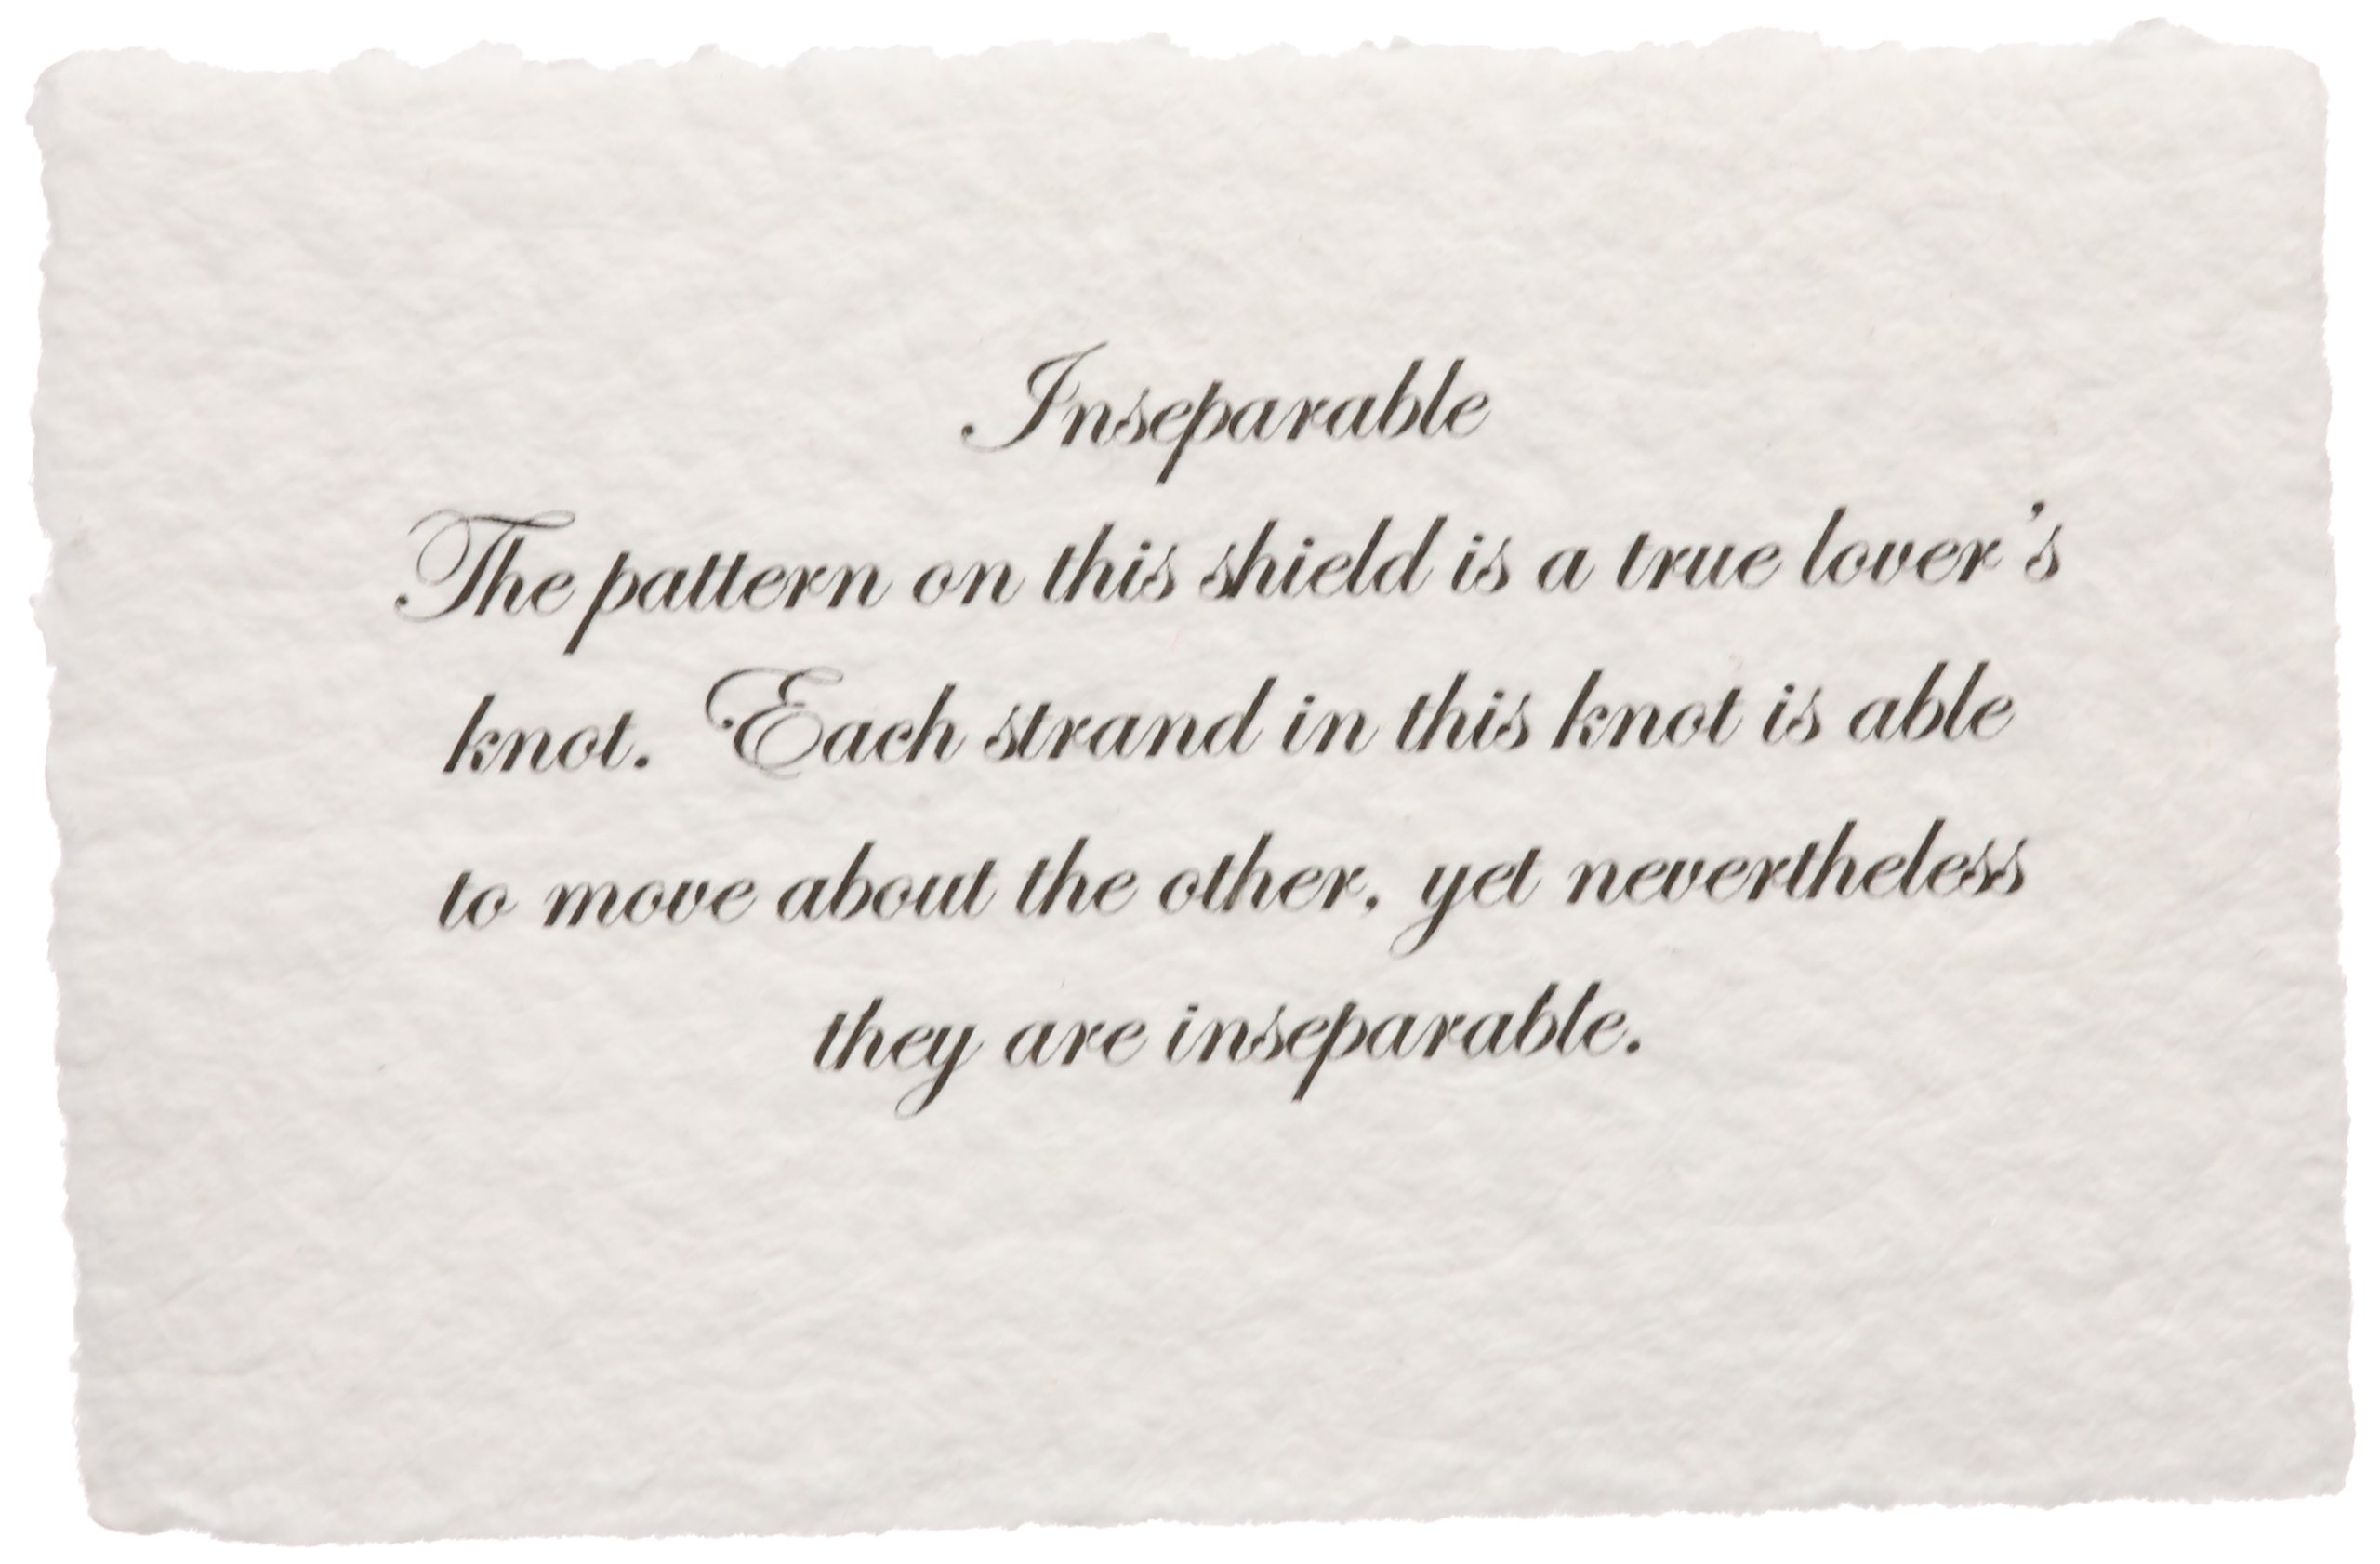 Inseparable
The pattern on this shield is a true lover's
knot. Each strand in this knot is able
to move about the other, yet nevertheless
they are inseparable.